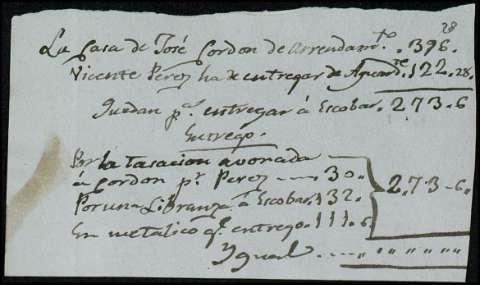 28
La Casa de José Cordon de arrendamto. 396.
Vicente Perez ha de entregar de Aguardte. 122.28.
Quedan pa. entregar á Escobar. 273.6
Entrego.
Por la tasacion avonada
á Cordon pr. Perez 30,,
Por una Libranza á Escobar. 132.
En metalico qe. entrego. 111.6.
273-6.
Ygual